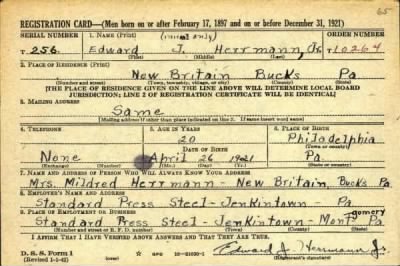 65
REGISTRATION CARD—(Men born on or after February 17, 1897 and on or before December 31, 1921)
SERIAL NUMBER 1. NAME (Print) (initial only) ORDER NUMBER
T 256 Edward J. Herrmann, Jr. T 10264
(First) (Middle) (Last)
2. PLACE OF RESIDENCE (Print)
New Britain Bucks Pa
(Number and street) (Town, township, village, or city) (County) (State)
[THE PLACE OF RESIDENCE GIVEN ON THE LINE ABOVE WILL DETERMINE LOCAL BOARD
JURISDICTION; LINE 2 OF REGISTRATION CERTIFICATE WILL BE IDENTICAL]
3. MAILING ADDRESS
Same
[Mailing address if other than place indicated on line 2. If same insert word same]
4. TELEPHONE 5. AGE IN YEARS 6. PLACE OF BIRTH
20 Philadelphia
DATE OF BIRTH (Town or county)
None April 26 1921 Pa.
(Exchange) (Number) (Mo.) (Day) (Yr.) (State or country)
7. NAME AND ADDRESS OF PERSON WHO WILL ALWAYS KNOW YOUR ADDRESS
Mrs. Mildred Herrmann - New Britain, Bucks Pa
8. EMPLOYER'S NAME AND ADDRESS
Standard Press Steel - Jenkintown - Pa.
9. PLACE OF EMPLOYMENT OR BUSINESS gomery
Standard Press Steel - Jenkintown - Mont Pa
(Number and street or R. F. D. number) (Town) (County) (State)
I AFFIRM THAT I HAVE VERIFIED ABOVE ANSWERS AND THAT THEY ARE TRUE.
D. S. S. Form 1
(Revised 1-1-42) Edward J. Herrmann Jr.